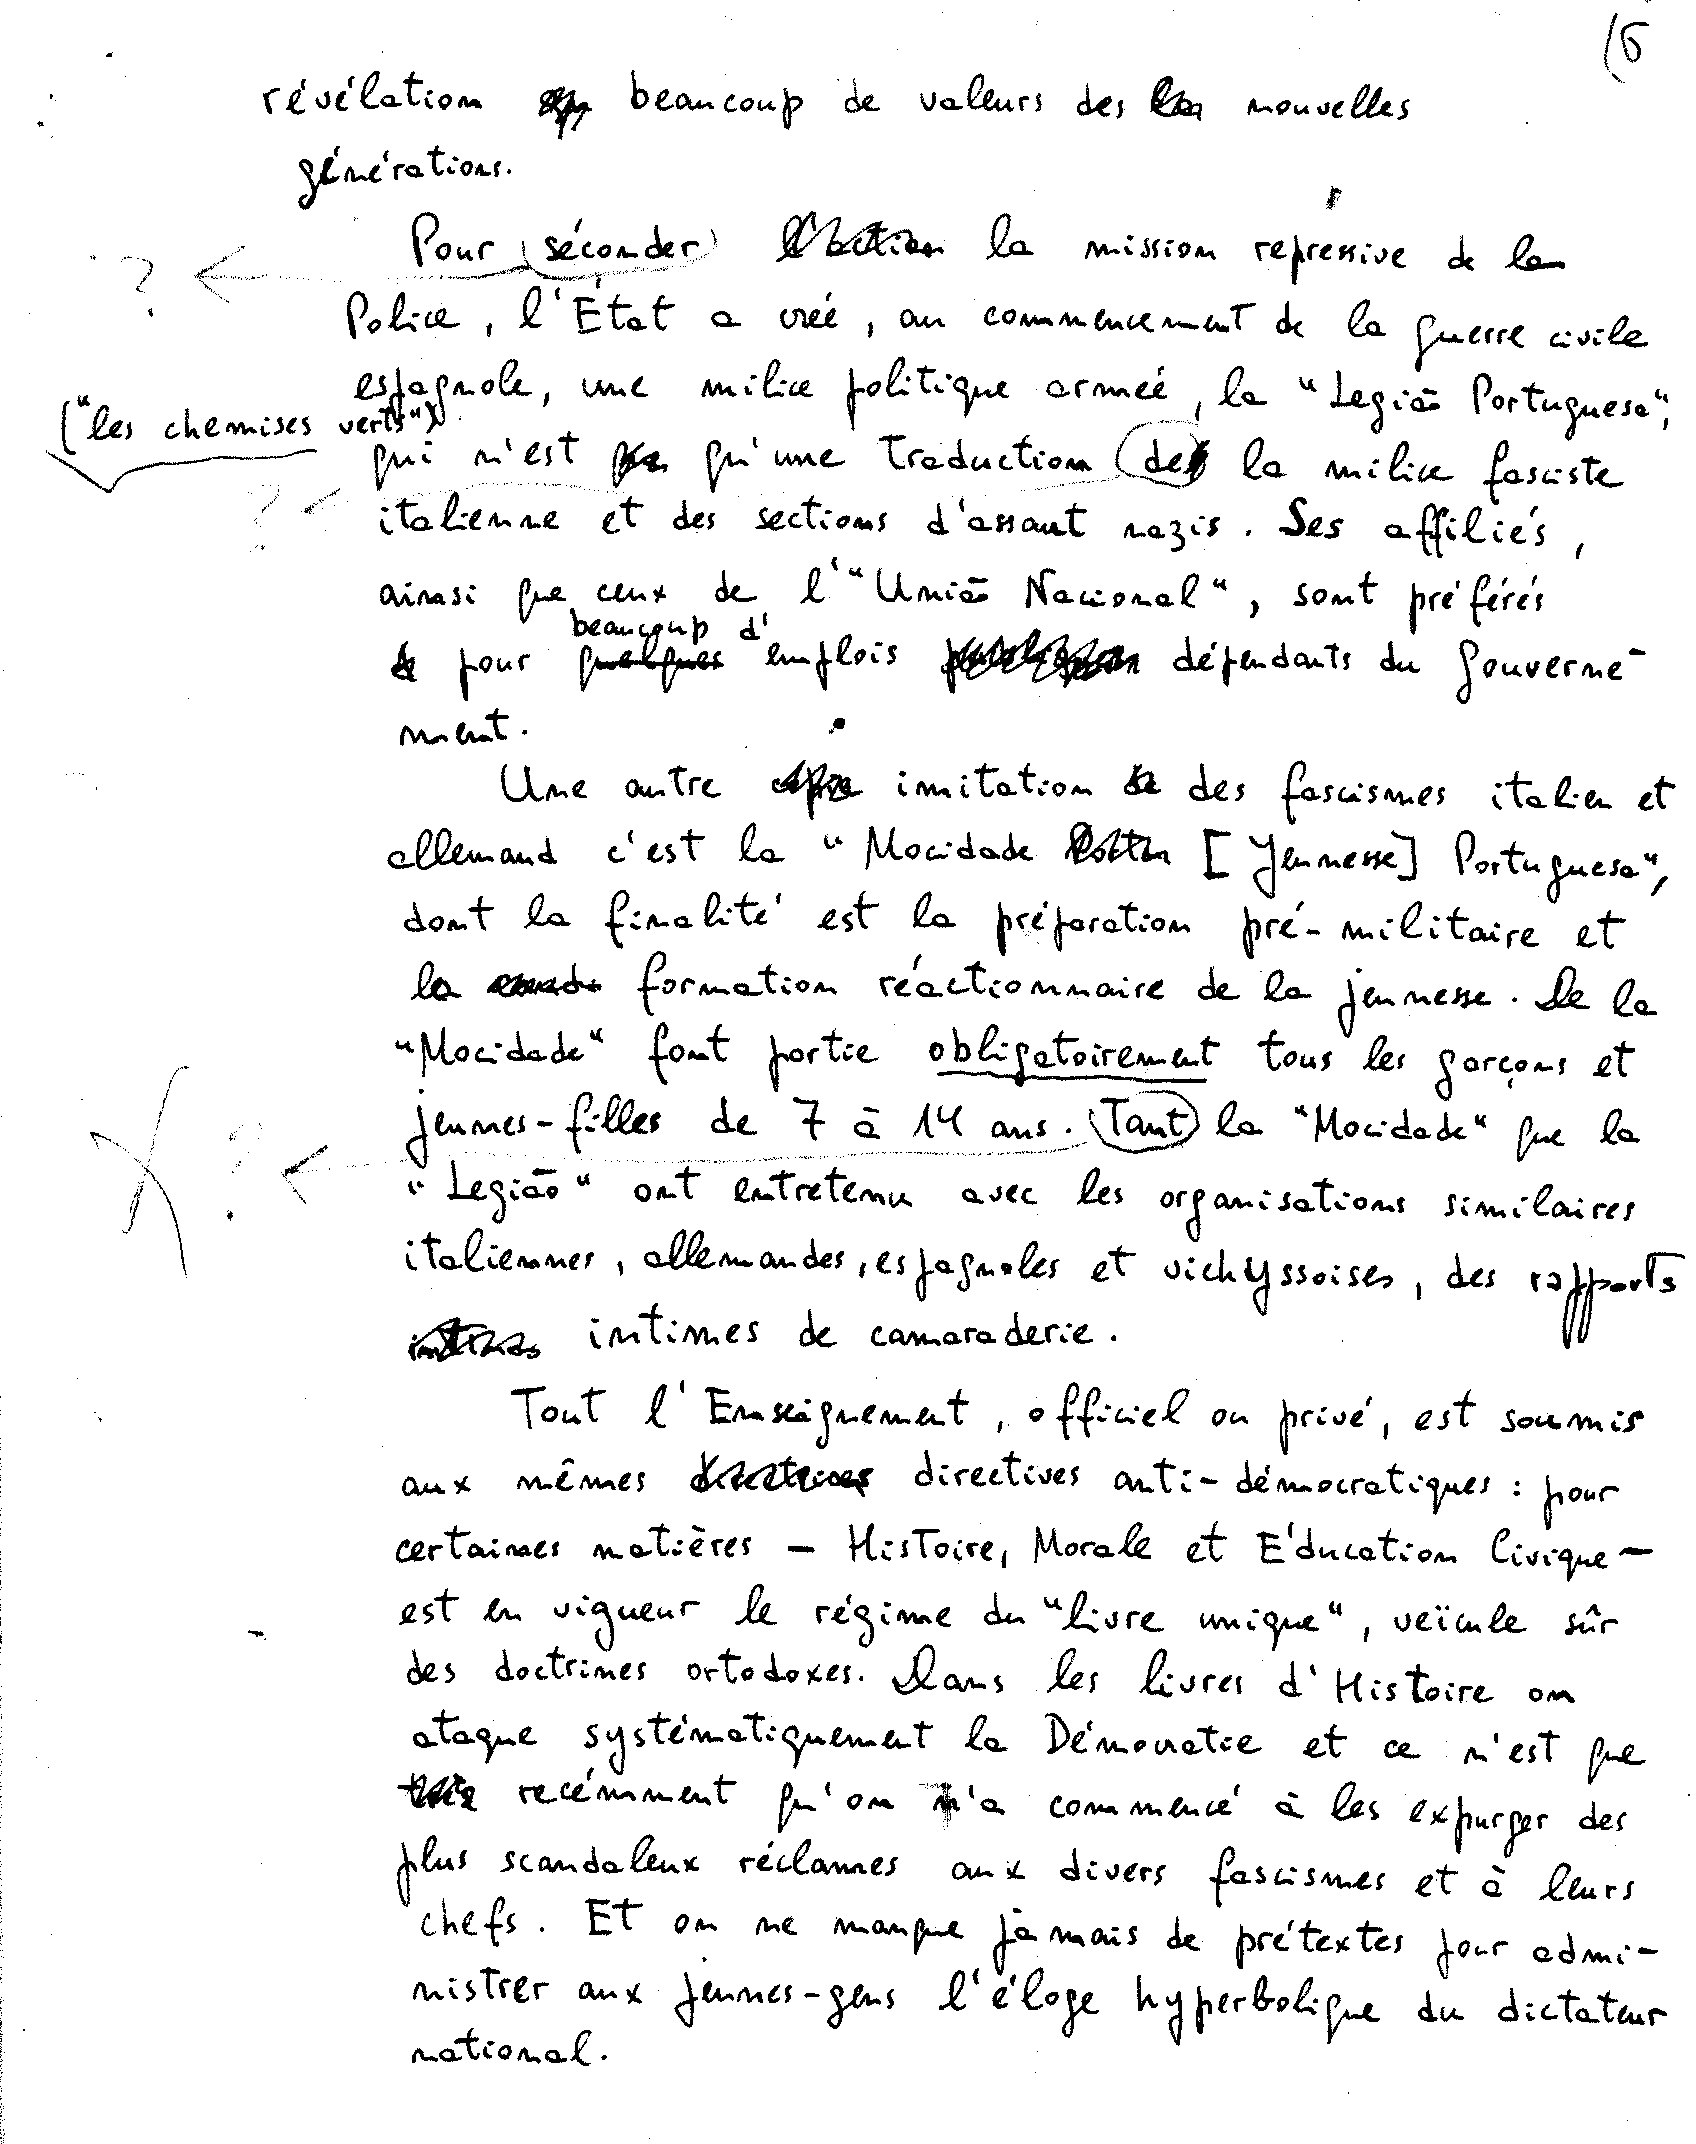 (6
révélation beaucoup de valeurs des nouvelles
générations.
Pour (séconder) la mission repressive de la
?
Police, l'État a créé, au commencement de la guerre civile
espagnole, une milice politique armeé, la "Legião Portuguesa",
("les chemises verts")
qui n'est qu'une traduction de la milice fasciste
?
italienne et des sections d'assaut nazis. Ses affiliés,
ainsi que ceux de l'"União Nacional", sont préférés
beaucoup d'
pour quelques emplois dépendants du Gouverne-
ment.
Une autre imitation des fascismes italien et
allemand c'est la "Mocidade [Jeunesse] Portuguesa",
dont la finalité est la préparation pré-militaire et
la formation réactionnaire de la jeunesse. De la
"Mocidade" font partie obligatoirement tous les garçons et
jeunes-filles de 7 à 14 ans. Tant la "Mocidade" que la
X ?
"Legião" ont entretenu avec les organisations similaires
italiennes, allemandes, espagnoles et vichyssoises, des rapports
intimes de camaraderie.
Tout l'Enseignement, officiel ou privé, est soumis
aux mêmes directives anti-démocratiques : pour
certaines matières - Histoire, Morale et Éducation Civique -
est en vigueur le régime du "livre unique", veïcule sûr
des doctrines ortodoxes. Dans les livres d'Histoire on
ataque systématiquement la Démocratie et ce n'est que
recémment qu'on n'a commencé à les expurger des
plus scandaleux réclames aux divers fascismes et à leurs
chefs. Et on ne manque jamais de prétextes pour admi-
nistrer aux jeunes-gens l'éloge hyperbolique du dictateur
national.